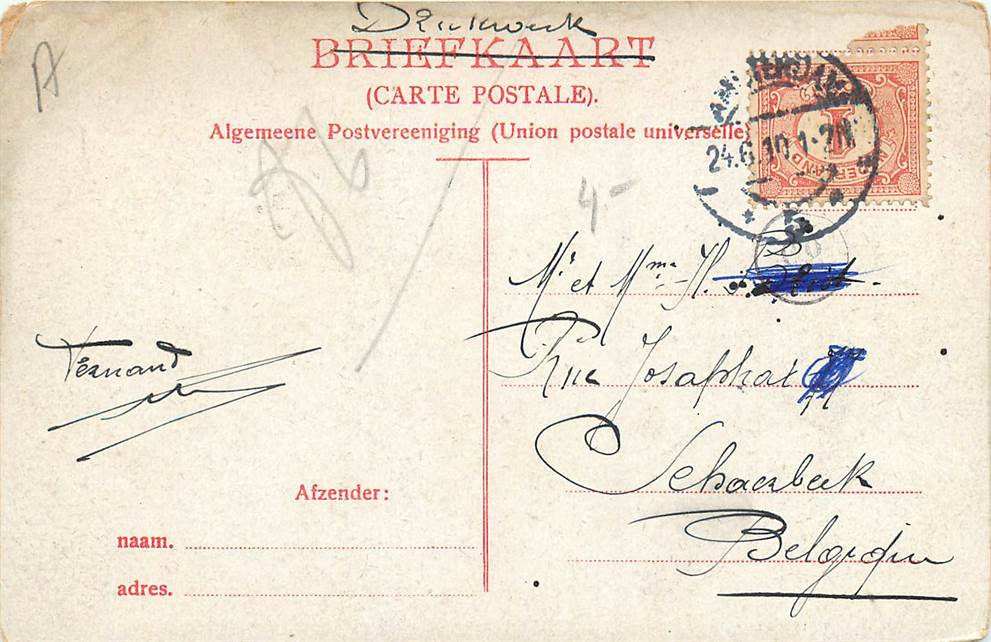 Drukwerk
BRIEFKAART
(CARTE POSTALE).
Algemeene Postvereeniging (Union postale universelle)
AMSTERDAM
24.6.10 1-2N
5
A
4.-
Mr et Mme H.
Rue Josaphat
Schaerbeek
Belgique
Fernand
Afzender:
naam.
adres.